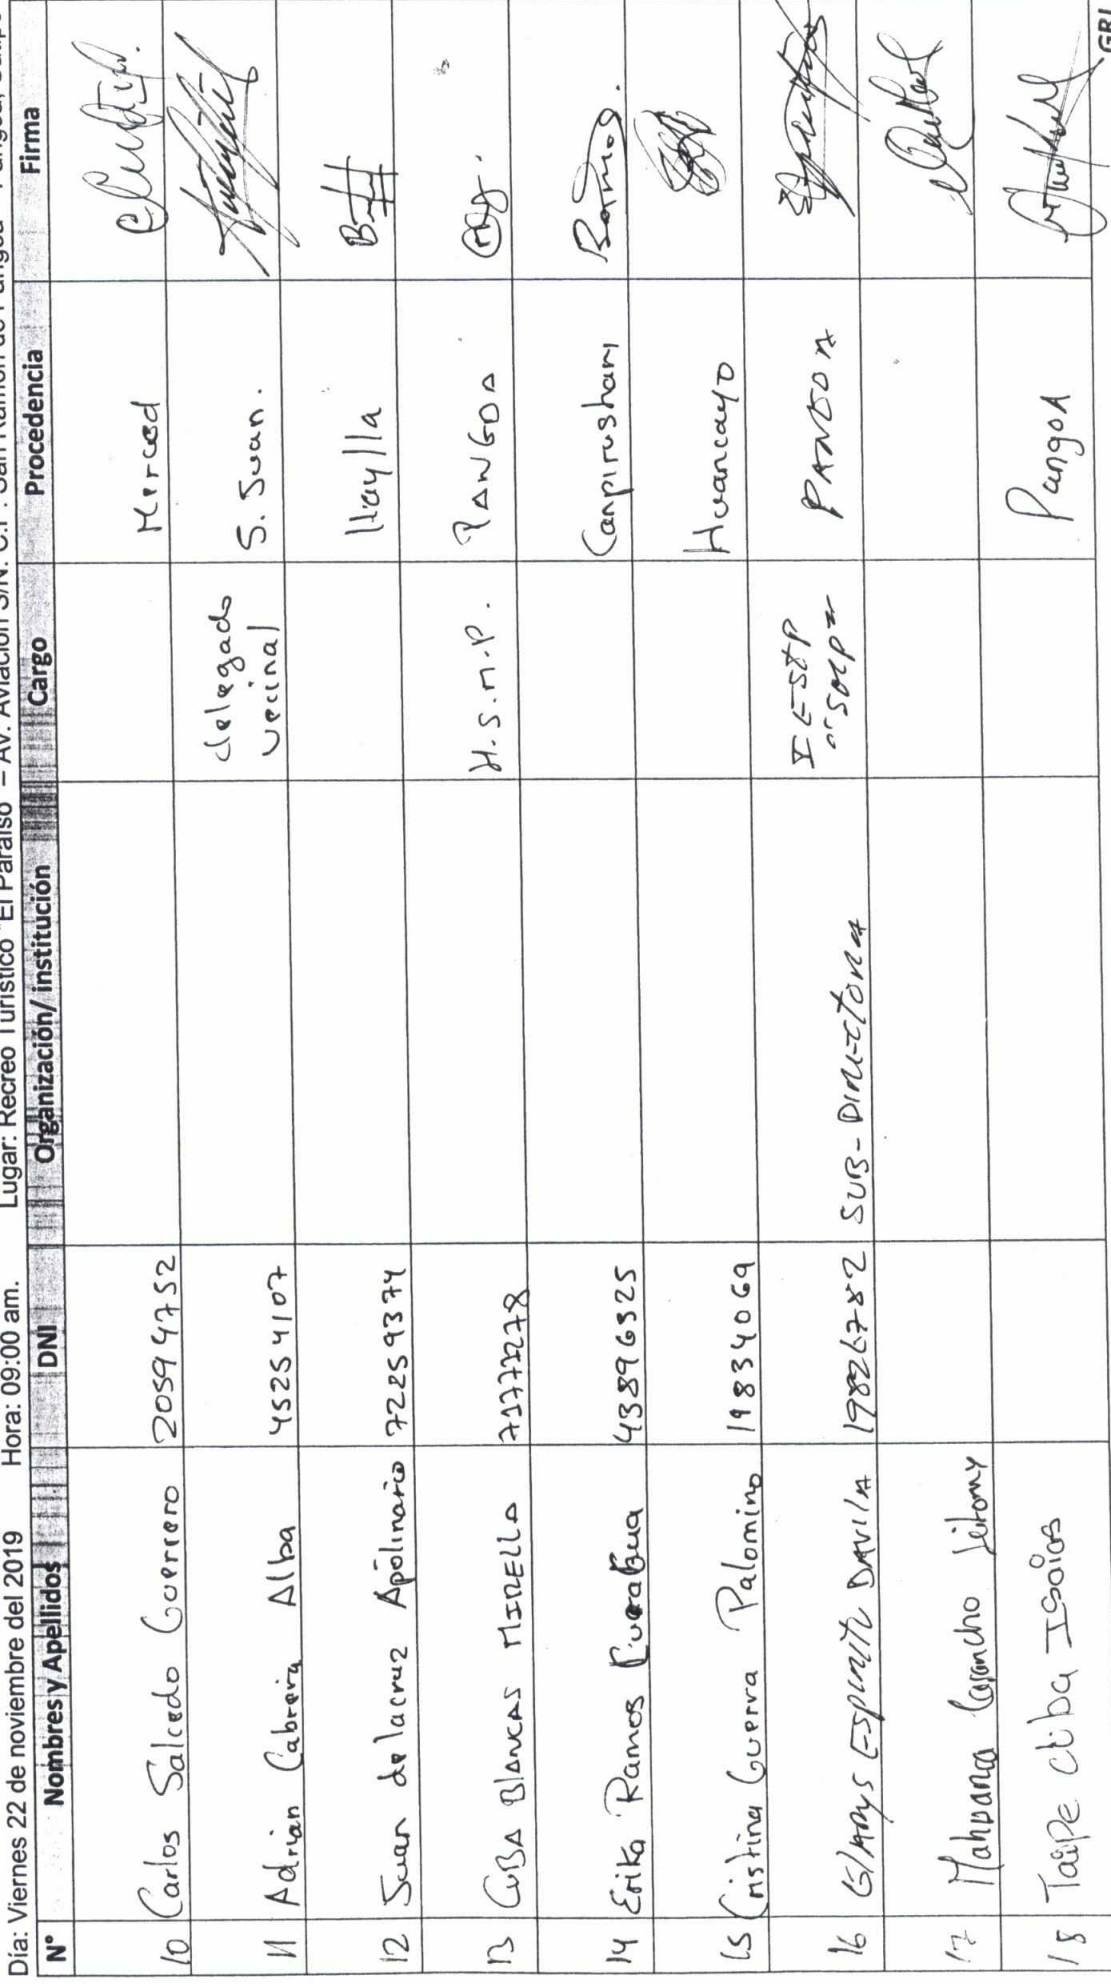 Día: Viernes 22 de noviembre del 2019 Hora: 09:00 am. Lugar: Recreo Turístico "El Paraíso" – Av. Aviación S/N. C.P. San Ramón de Pangoa
N° Nombres y Apellidos DNI Organización/ institución Cargo Procedencia Firma
10 Carlos Salcedo Guerrero 20594752 Merced
11 Adrian Cabrera Alba 45254107 delegado vecinal S. Juan.
12 Juan de la cruz Apolinario 72259374 llaylla
13 CUBA BLANCAS MIRELLA 71777278 H.S.M.P. PANGOA
14 Erika Ramos 43896325 Canpirushari
15 Cristina Guerra Palomino 19834069 Huancayo
16 GLADYS ESPIRITU DAVILA 19826782 SUB-DIRECTORA IESTP PANGOA
17 Mahuanca Casancho
18 Taipe Cuba Isaias Pangoa
GRJ